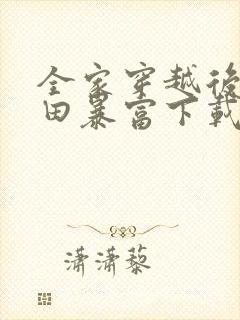 全家穿越後
田暴富下載
瀟瀟藜